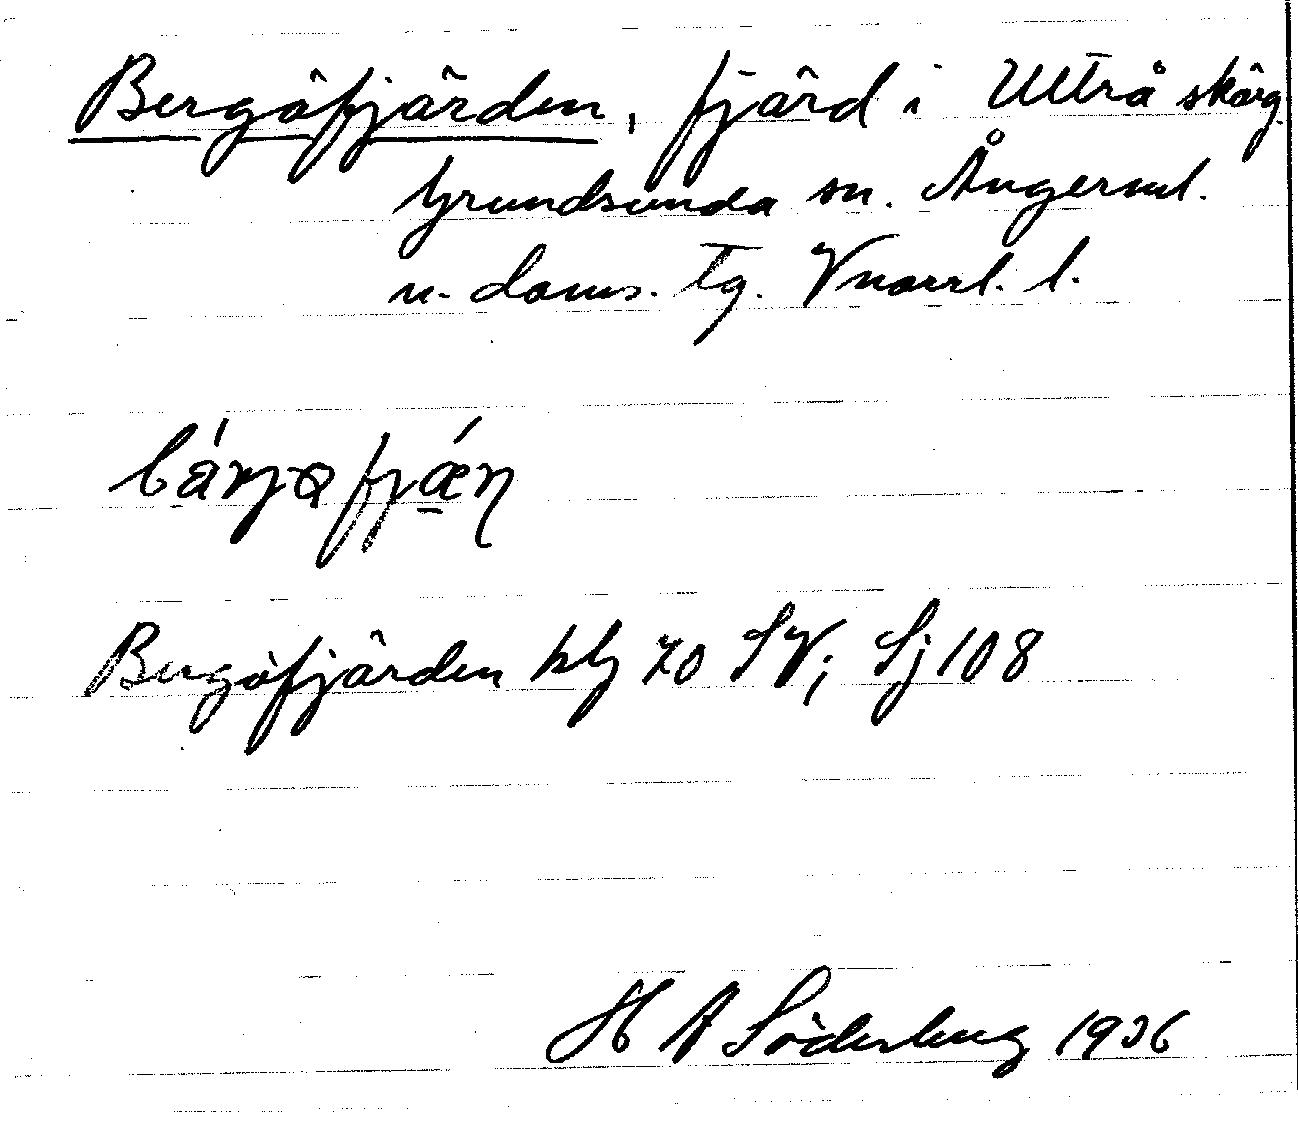 Bergöfjärden, fjärd i Ulvö skärg.
Grundsunda sn. Ångerml.
n. doms. tg. Vnorrl. l.
Bergöfjärden blg 70 SV; Sj 108
H A Söderberg 1936